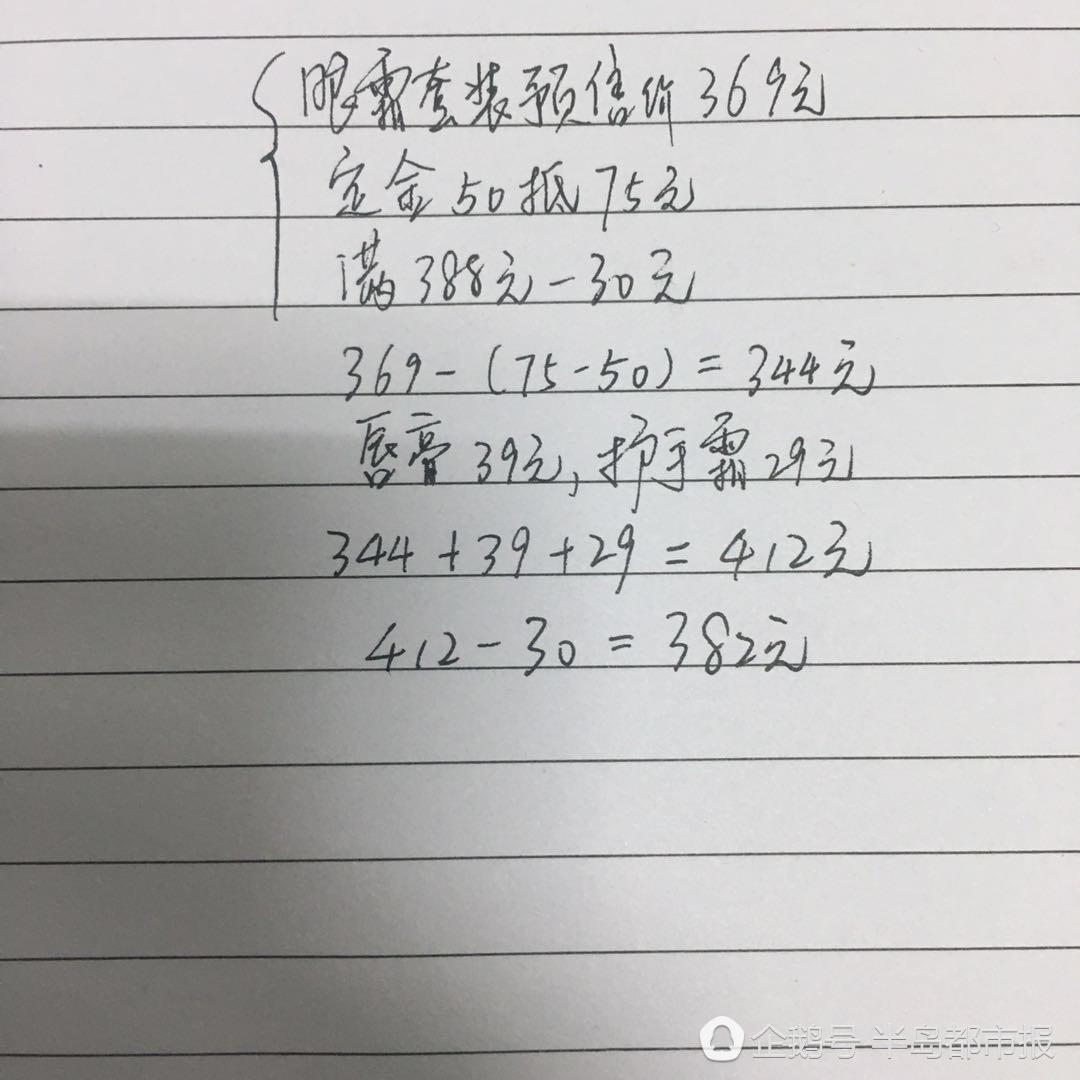 眼霜套装预售价369元
定金50抵75元
满388元-30元
369-(75-50)=344元
唇膏39元,护手霜29元
344+39+29=412元
412-30=382元
企鹅号 半岛都市报